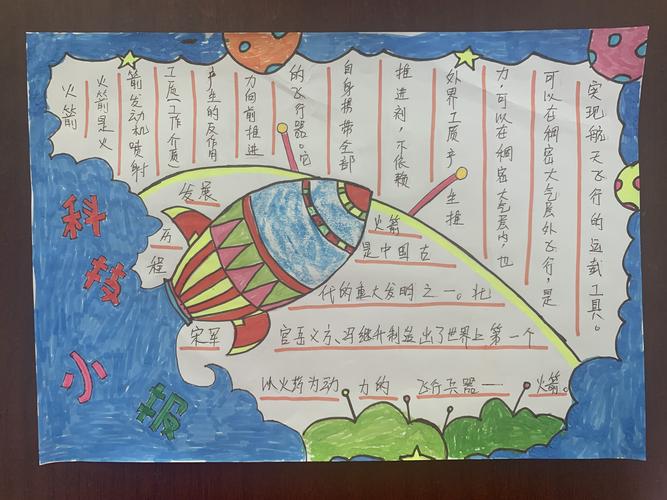 科技小报
火箭
火箭是火
箭发动机喷射
工质(工作介质)
产生的反作用
力向前推进
的飞行器。它
自身携带全部
推进剂,不依赖
外界工质产生推
力,可以在稠密大气层内,也
可以在稠密大气层外飞行,是
实现航天飞行的运载工具。
发展
历
程
火箭
是中国古
代的重大发明之一。北
宋军官岳义方、冯继升出了世界上第一个
以火药为动力的飞行兵器——火箭。